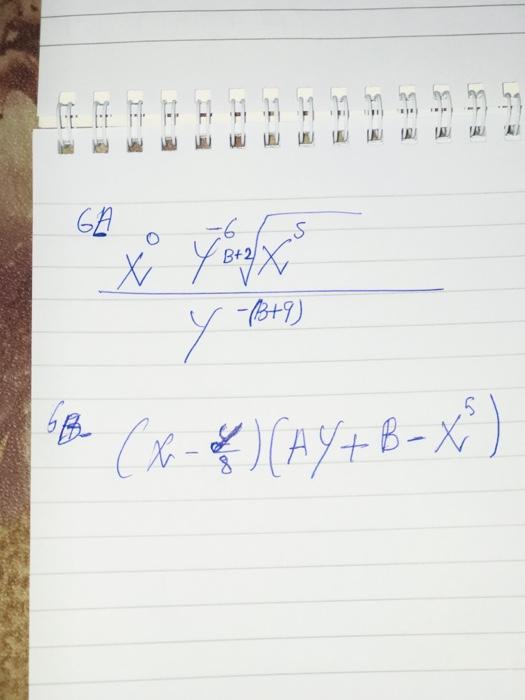 6A
x⁰ y⁻⁶ ᴮ⁺²√x⁵
y⁻⁽ᴮ⁺⁹⁾
6B- (x - y/8)(Ay + B - x⁵)